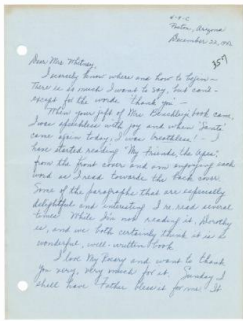 6-9-C
Poston, Arizona
December 22, 194
357
Dear Mrs. Whitney,
I scarcely know where and how to begin—
There is so much I want to say, but can't—
except for the words "thank you"—
When your gift of Mrs. Benchley's book came,
I was speechless with joy and when Santa
came again today, I was breathless— I
have started reading "My Friends, the Apes",
from the front cover and am enjoying each
word as I read towards the back cover.
Some of the paragraphs that are especially
delightful and interesting I've read several
times. While I'm not reading it, Dorothy
is, and we both certainly think it is a
wonderful, well-written book.
I love My Rosary and want to thank
you very, very much for it. Sunday I
shall have Father bless it for me. It